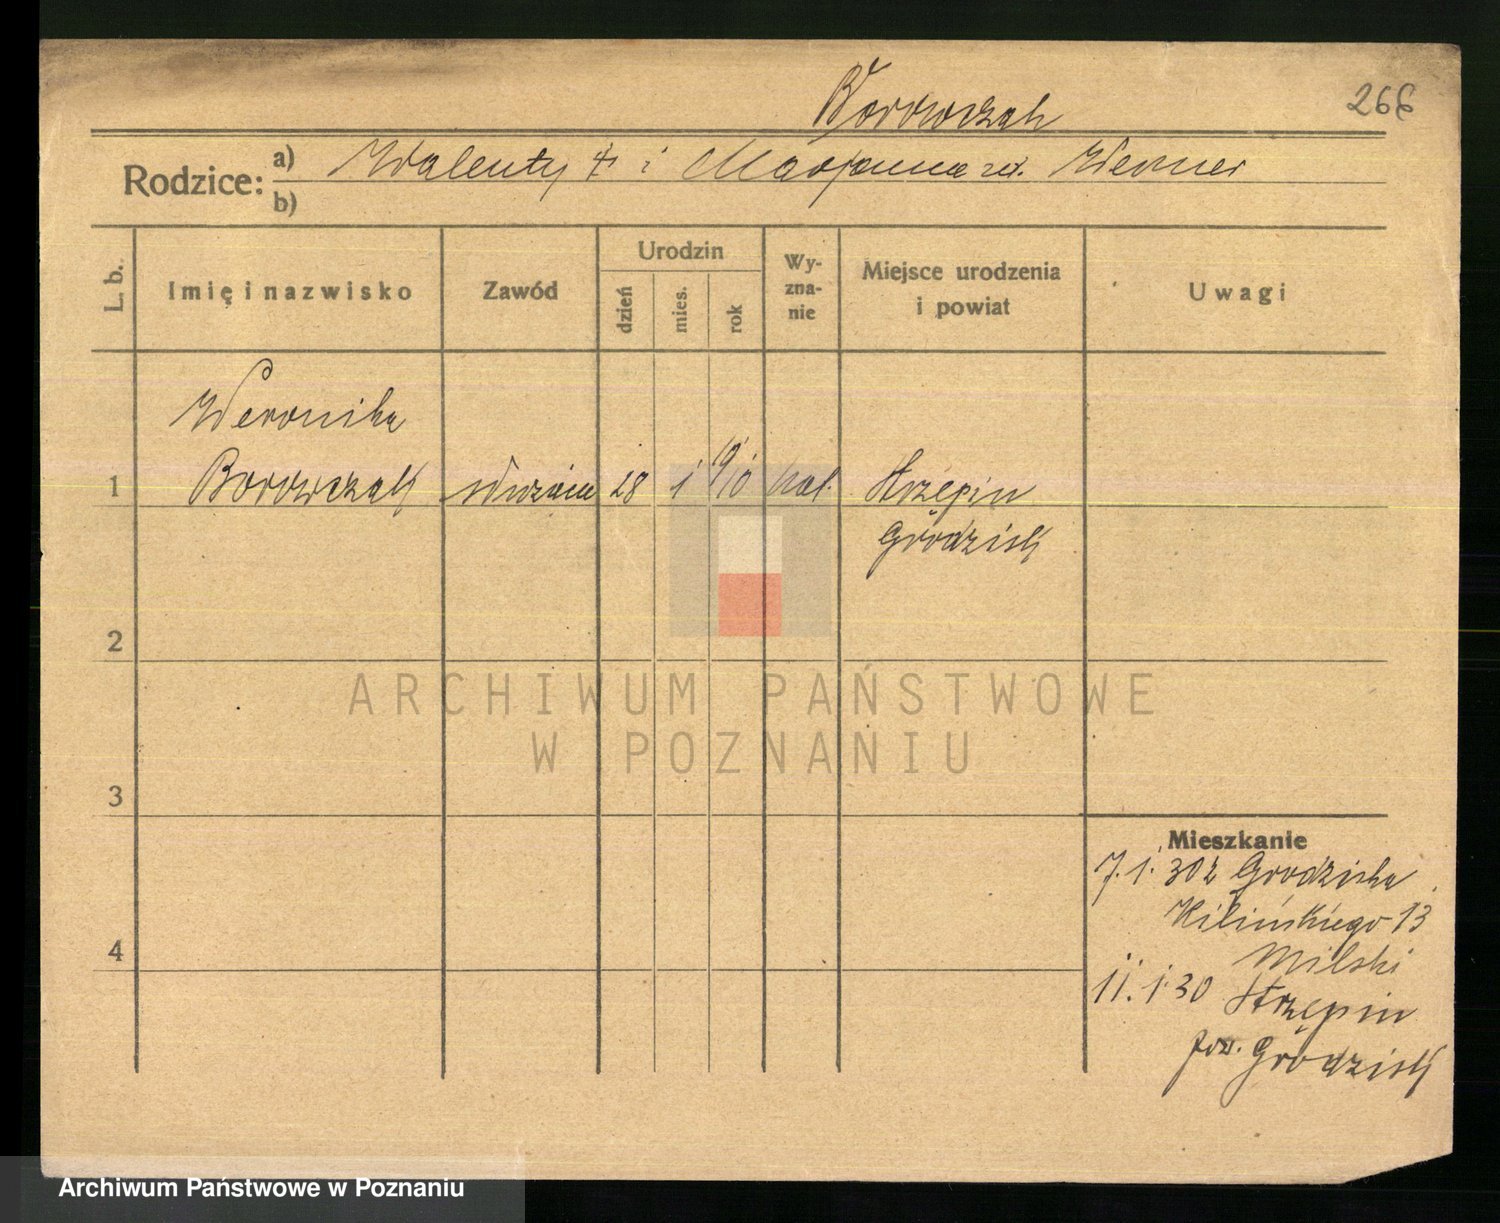 Borowczak
266
Rodzice: a) Walenty † i Marjanna zd. Werner
b)
L. b. Imię i nazwisko Zawód Urodzin dzień mies. rok Wyznanie Miejsce urodzenia i powiat Uwagi
Weronika
1 Borowczak 28 1 910 kat. Strzępin
Grodzisk
2
3
4
Mieszkanie
7.1.30 z Grodziska
Kilińskiego 13
Milski
11.1.30 Strzępin
pow. Grodzisk
ARCHIWUM PAŃSTWOWE
W POZNANIU
Archiwum Państwowe w Poznaniu